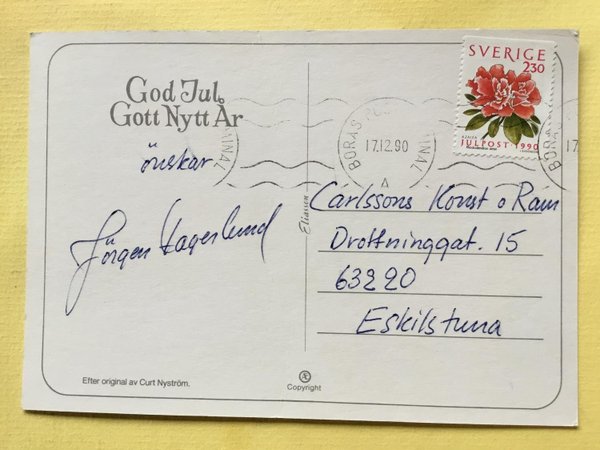 God Jul,
Gott Nytt År
önskar
Jörgen Hagerlund
Efter original av Curt Nyström.
Eliasson
Æ
Copyright
BORÅS
17.12.90
A
BORÅS
17.12.90
SVERIGE
2.30
AZALEA
JULPOST 1990
Carlssons Konst o Ram
Drottninggat. 15
63220
Eskilstuna